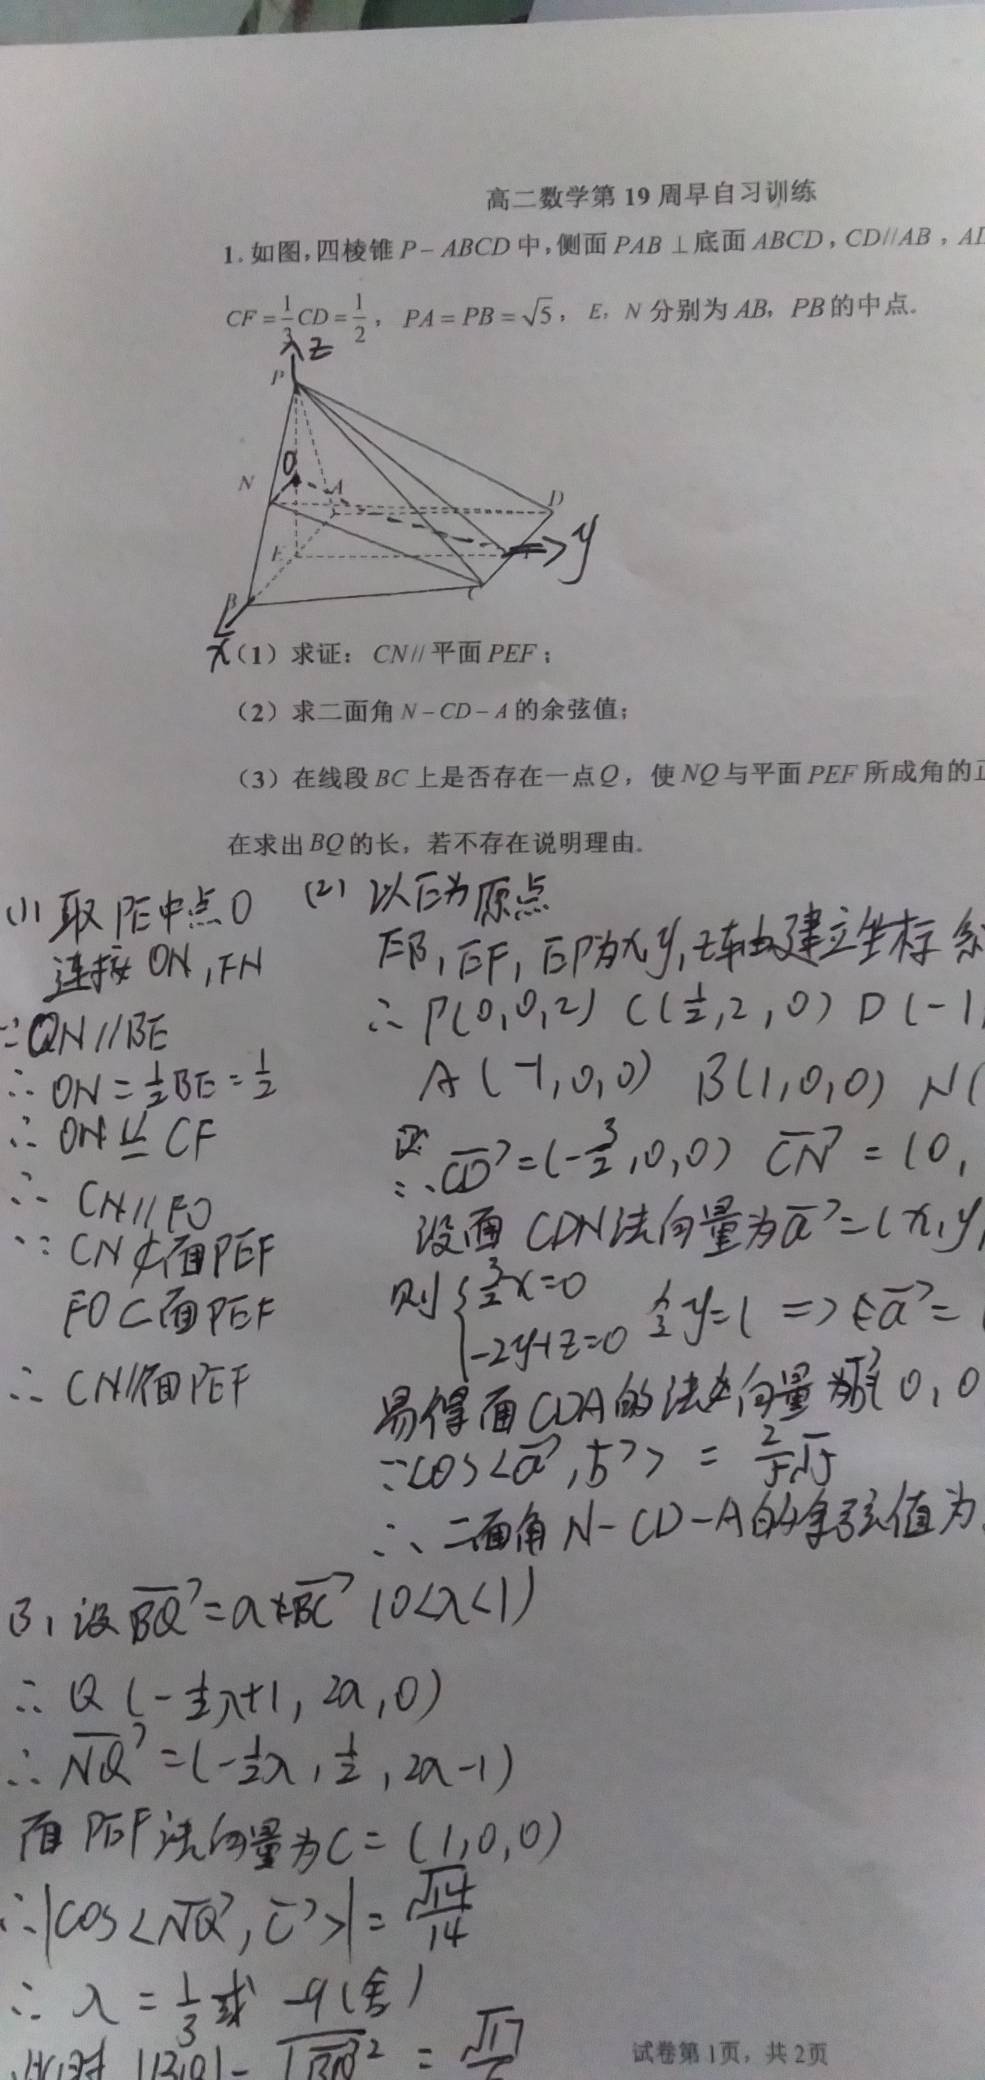 高二数学第 19 周早自习训练
1. 如图,四棱锥 P－ABCD 中,侧面 PAB ⊥ 底面 ABCD, CD//AB, AD
CF = 1/3 CD = 1/2, PA = PB = √5, E, N 分别为 AB, PB 的中点.
z
P
O
N
A
D
E
y
B
C
x
(1) 求证: CN// 平面 PEF;
(2) 求二面角 N－CD－A 的余弦值;
(3) 在线段 BC 上是否存在一点 Q, 使 NQ 与平面 PEF 所成角的正
在求出 BQ 的长, 若不存在说明理由.
(1) 取 PE中点 O
连接 ON, FN
∵ ON // BE
∴ ON = 1/2 BE = 1/2
∴ ON ∥= CF
∴ CN // FO
∵ CN ⊄ 面 PEF
FO ⊂ 面 PEF
∴ CN // 面 PEF
(2) 以E为原点
EB, EF, EP为x, y, z轴建立坐标系
∴ P(0,0,2) C(1/2,2,0) D(-1
A(-1,0,0) B(1,0,0) N(
∴ CD = (-3/2,0,0) CN = (0,
设面 CDN法向量为 a = (x, y,
则 { 3/2 x = 0
-2y+z=0 令 y=1 => a =
易得面 CDA的法向量为 b(0, 0
∵ cos<a, b> = 2/5 √5
∴ 二面角 N-CD-A的余弦值为
(3) 设 BQ = λ BC (0<λ<1)
∴ Q (-1/2 λ+1, 2λ, 0)
∴ NQ = (-1/2 λ, 1/2, 2λ-1)
面 PEF 法向量为 C = (1,0,0)
∴ |cos<NQ, C>| = √14/14
∴ λ = 1/3 或 -9 (舍)
此时 |BQ| =
试卷第 1页, 共 2页